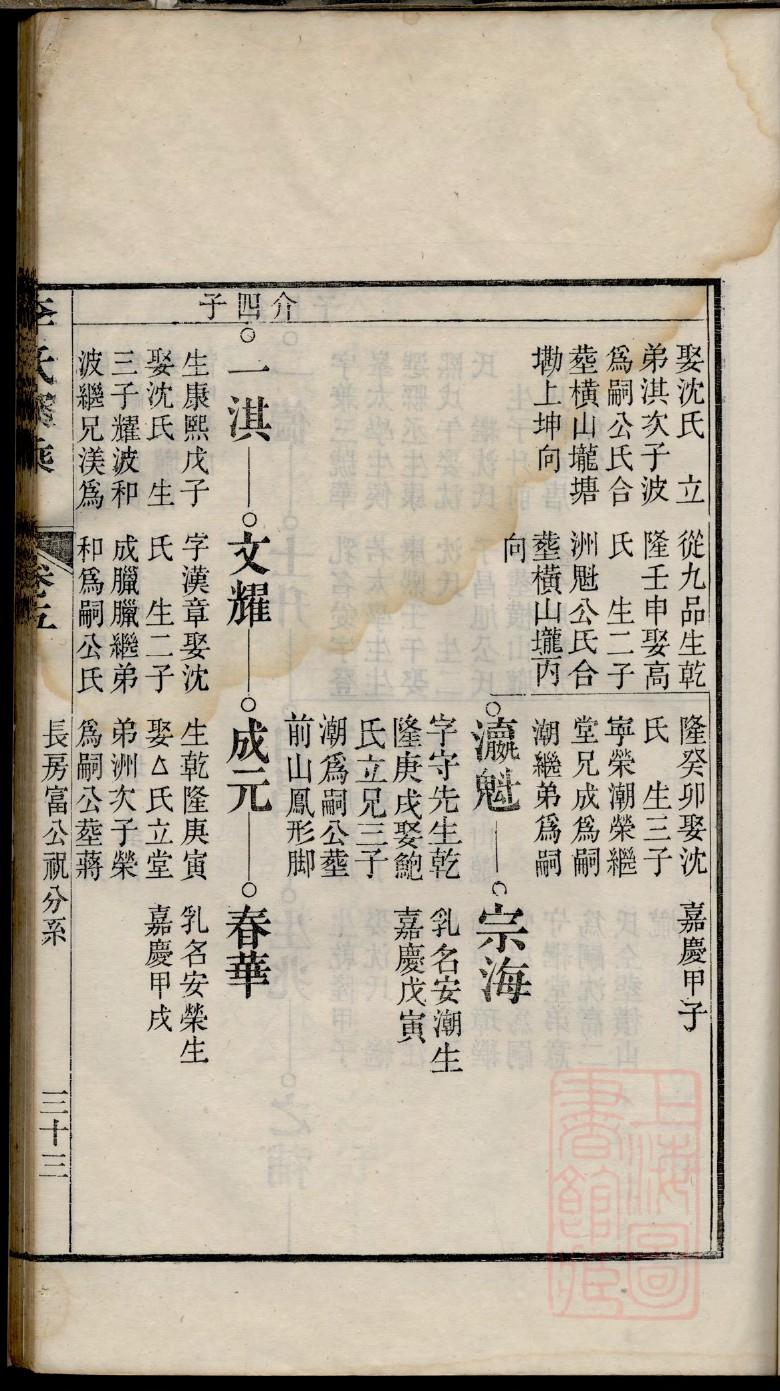 娶沈氏　立
弟淇次子波
爲嗣公氏合
塟橫山壠塘
墈上坤向
從九品生乾
隆壬申娶高
氏　生二子
洲魁公氏合
塟橫山壠丙
向
隆癸卯娶沈
氏　生三子
寧榮潮榮繼
堂兄成爲嗣
潮繼弟爲嗣
嘉慶甲子
瀛魁
宗海
字守先生乾
隆庚戌娶鮑
氏立兄三子
潮爲嗣公塟
前山鳳形脚
乳名安潮生
嘉慶戊寅
介四子
一淇
文耀
成元
春華
生康熙戊子
娶沈氏　生
三子耀波和
波繼兄渼爲
字漢章娶沈
氏　生二子
成臘臘繼弟
和爲嗣公氏
生乾隆庚寅
娶△氏立堂
弟洲次子榮
爲嗣公塟蔣
乳名安榮生
嘉慶甲戌
李氏宗乘
卷五
長房富公祝分系
三十三
上海圖書館藏